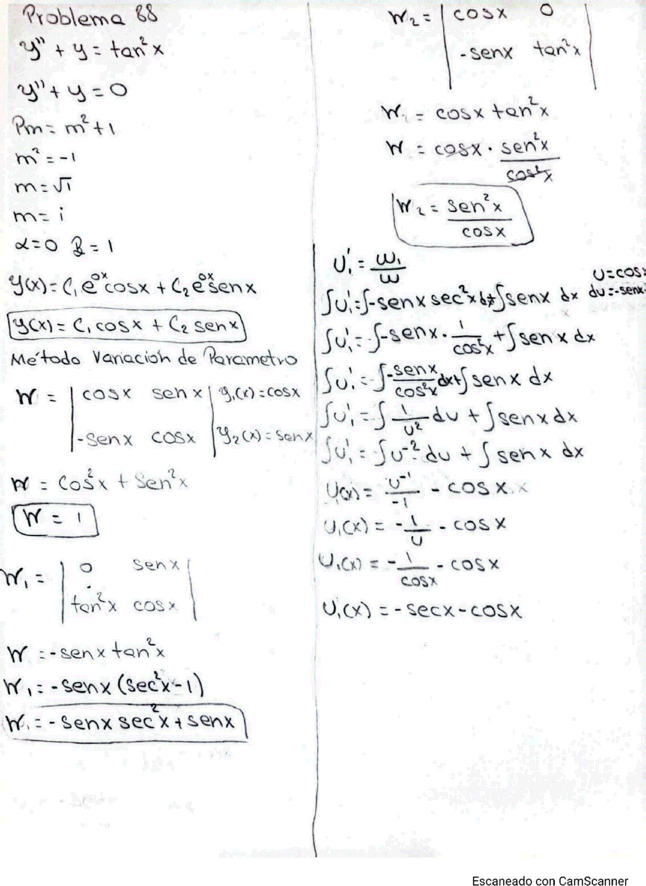 Problema 88
y'' + y = tan²x
y'' + y = 0
Pm = m² + 1
m² = -1
m = √1
m = i
α = 0 B = 1
y(x) = C₁ e^{0x} cosx + C₂ e^{0x} senx
y(x) = C₁ cosx + C₂ senx
Método Variación de Parametro
W = | cosx senx | y₁(x) = cosx
| -senx cosx | y₂(x) = senx
W = Cos²x + Sen²x
W = 1
W₁ = | 0 senx |
| tan²x cosx |
W = -senx tan²x
W₁ = -senx (sec²x - 1)
W₁ = -senx sec²x + senx
W₂ = | cosx 0 |
| -senx tan²x |
W₁ = cosx tan²x
W = cosx · sen²x / cos²x
W₂ = sen²x / cosx
U₁' = ω₁ / ω
∫U₁' = ∫-senx sec²x dx + ∫senx dx
U = cosx
du = -senx
∫U₁' = ∫-senx · 1 / cos²x + ∫senx dx
∫U₁' = ∫ -senx / cos²x dx + ∫senx dx
∫U₁' = ∫ 1 / U² du + ∫senx dx
∫U₁' = ∫U⁻² du + ∫senx dx
U₁(x) = U⁻¹ / -1 - cosx
U₁(x) = - 1 / U - cosx
U₁(x) = - 1 / cosx - cosx
U₁(x) = -secx - cosx
Escaneado con CamScanner